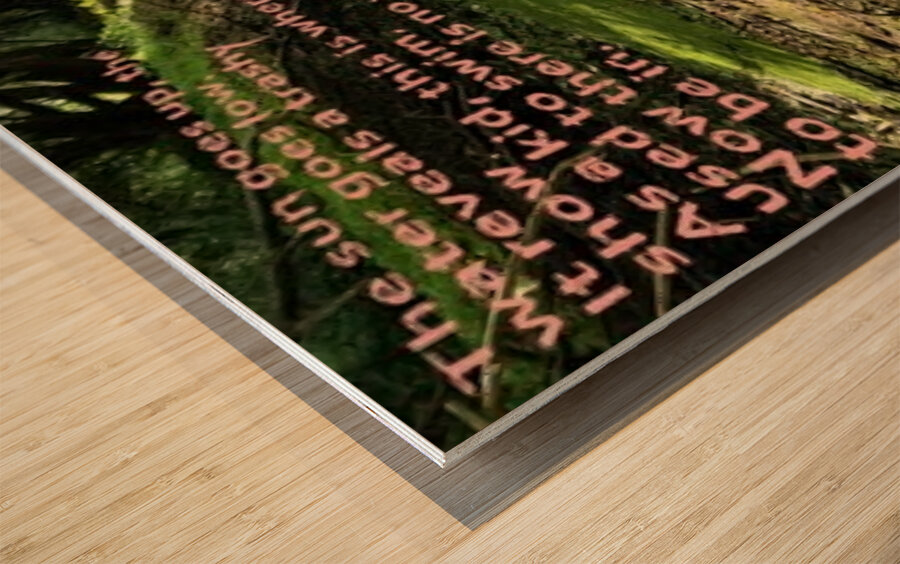 The sun goes up the
water goes low,
It reveals a trashy
show
As a kid, this is where
Used to swim.
Now there is no
to be in.